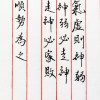 氣虛則神弱
神弱必走神
走神必家敗
順勢為之